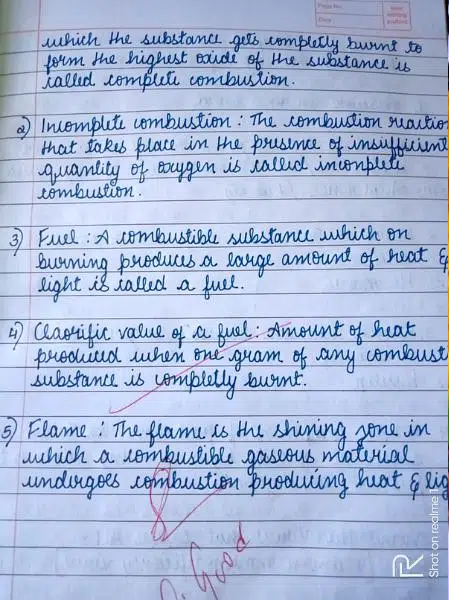 Page No.
Date
which the substance gets completly burnt to
form the highest oxide of the substance is
called complete combustion.
2) Incomplete combustion : The combustion reaction
that takes place in the presence of insufficient
quantity of oxygen is called incomplete
combustion.
3) Fuel : A combustible substance which on
burning produces a large amount of heat &
light is called a fuel.
4) Claorific value of a fuel : Amount of heat
produced when one gram of any combust
substance is completly burnt.
5) Flame : The flame is the shining zone in
which a combustible gaseous material
undergoes combustion producing heat & lig
Good
Shot on realme 1